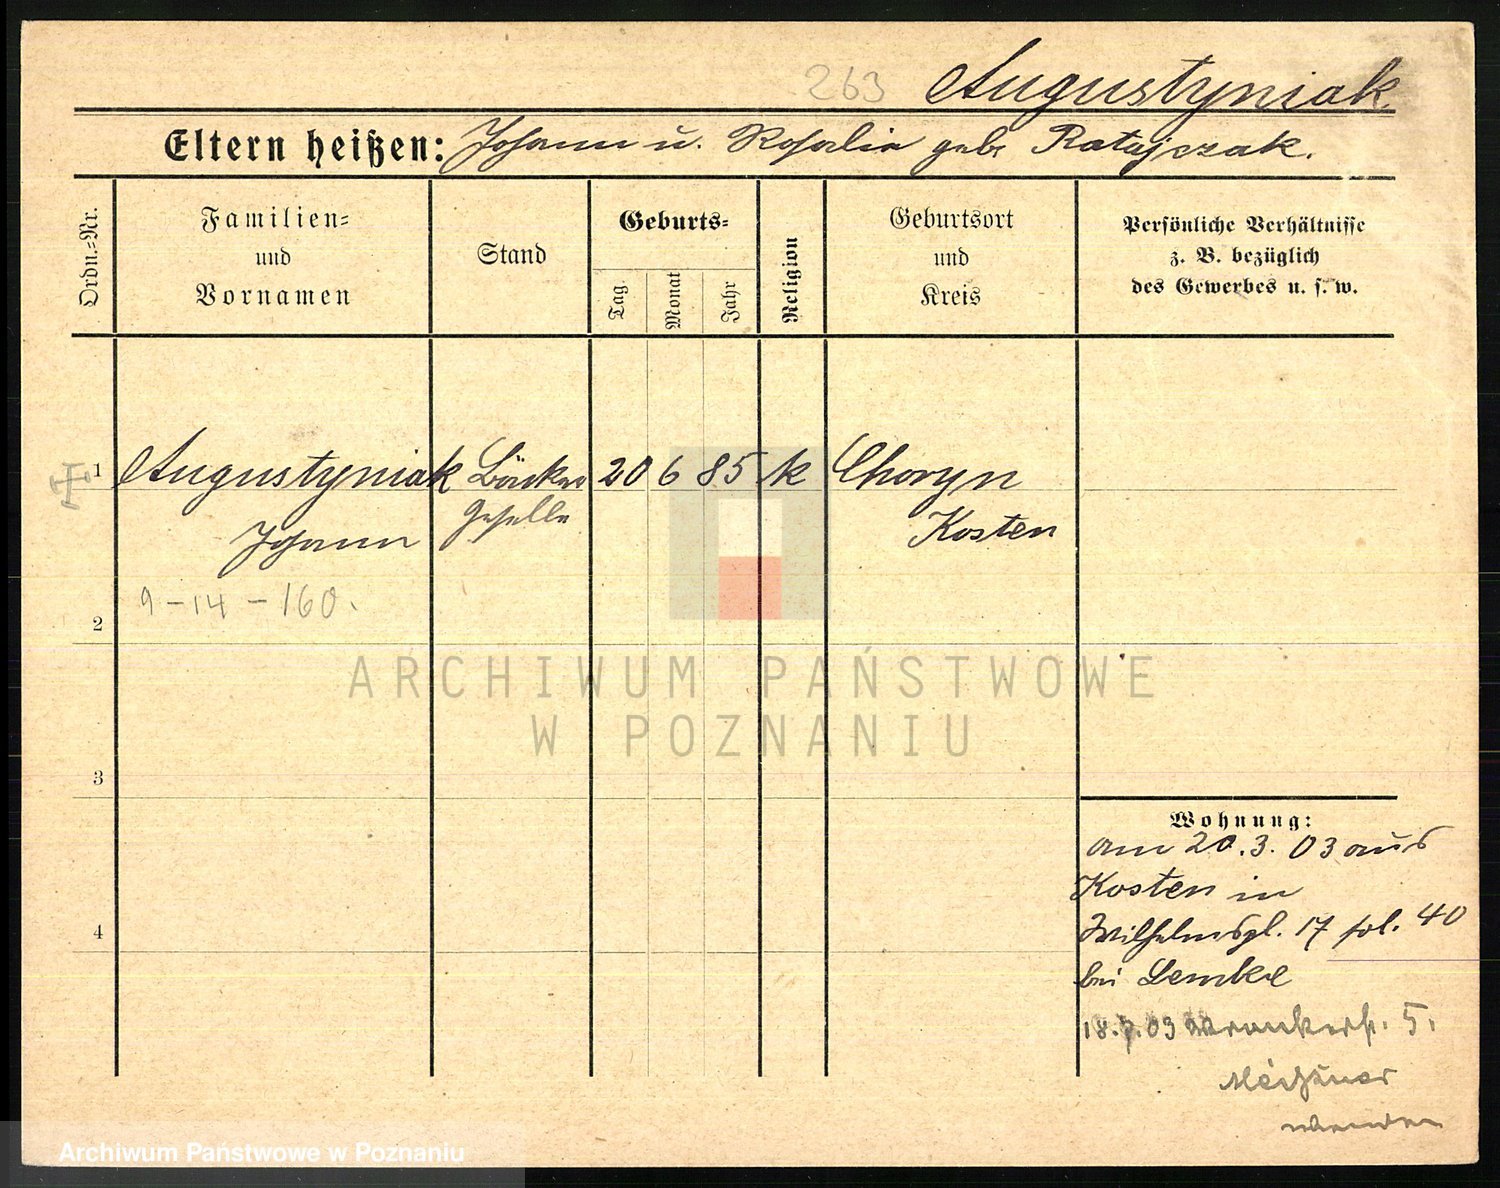 263 Augustyniak
Eltern heißen: Johann u. Rosalie geb. Ratajczak.
Ordn.=Nr.
Familien=
und
Vornamen
Stand
Geburts=
Tag.
Monat
Jahr
Religion
Geburtsort
und
Kreis
Persönliche Verhältnisse
z. B. bezüglich
des Gewerbes u. s. w.
1 Augustyniak Bäcker 20 6 85 k Choryn
Johann Geselle Kosten
9-14-160.
2
3
4
Wohnung:
am 20.3.03 aus
Kosten in
Wilhelmspl. 17 fol. 40
bei Lemke
18.7.03 Wronkerstr. 5.
wenden
ARCHIWUM PAŃSTWOWE
W POZNANIU
Archiwum Państwowe w Poznaniu